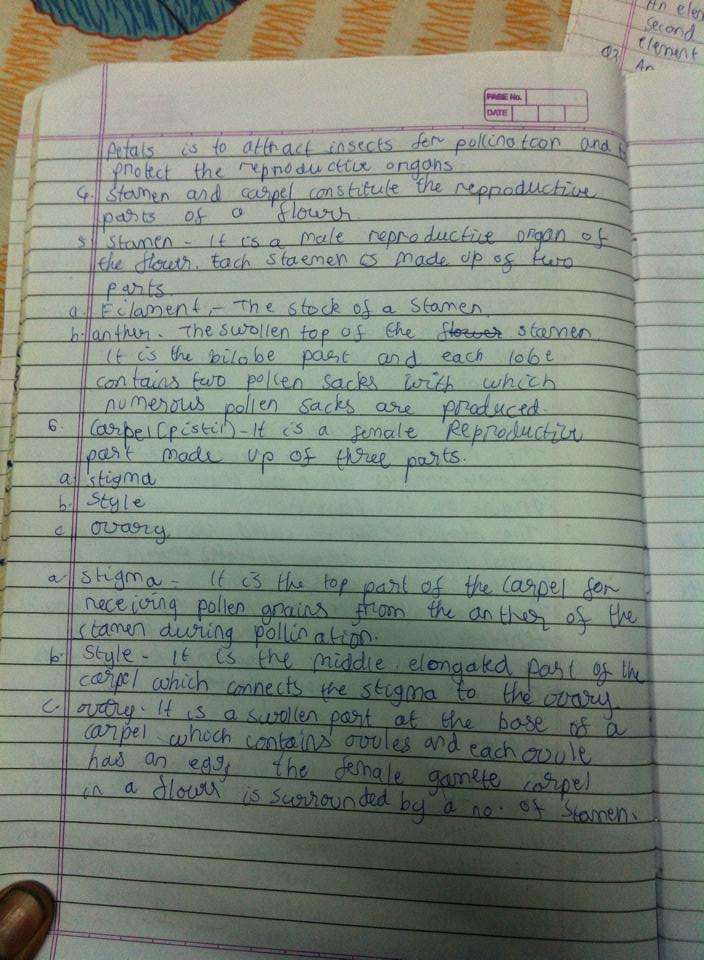 An elem
second
element
Q2 An
PAGE No.
DATE
Petals is to attract insects for pollination and to
protect the reproductive organs
4. Stamen and carpel constitute the reproductive
parts of a flower
5 Stamen - It is a male reproductive organ of
the flower. Each staemen is made up of two
parts.
a. Filament - The stock of a stamen.
b. anther. The swollen top of the flower stamen.
It is the bilobe part and each lobe
contains two pollen sacks with which
numerous pollen sacks are produced.
6. Carpel (pistil) - It is a female Reproductive
part made up of three parts.
a stigma
b. Style
c ovary
a stigma - It is the top part of the carpel for
receiving pollen grains from the anther of the
stamen during pollination.
b. Style - It is the middle elongated part of the
carpel which connects the stigma to the ovary
c. ovary. It is a swollen part at the base of a
carpel which contains ovules and each ovule
has an egg, the female gamete carpel
in a flower is surrounded by a no. of stamen.